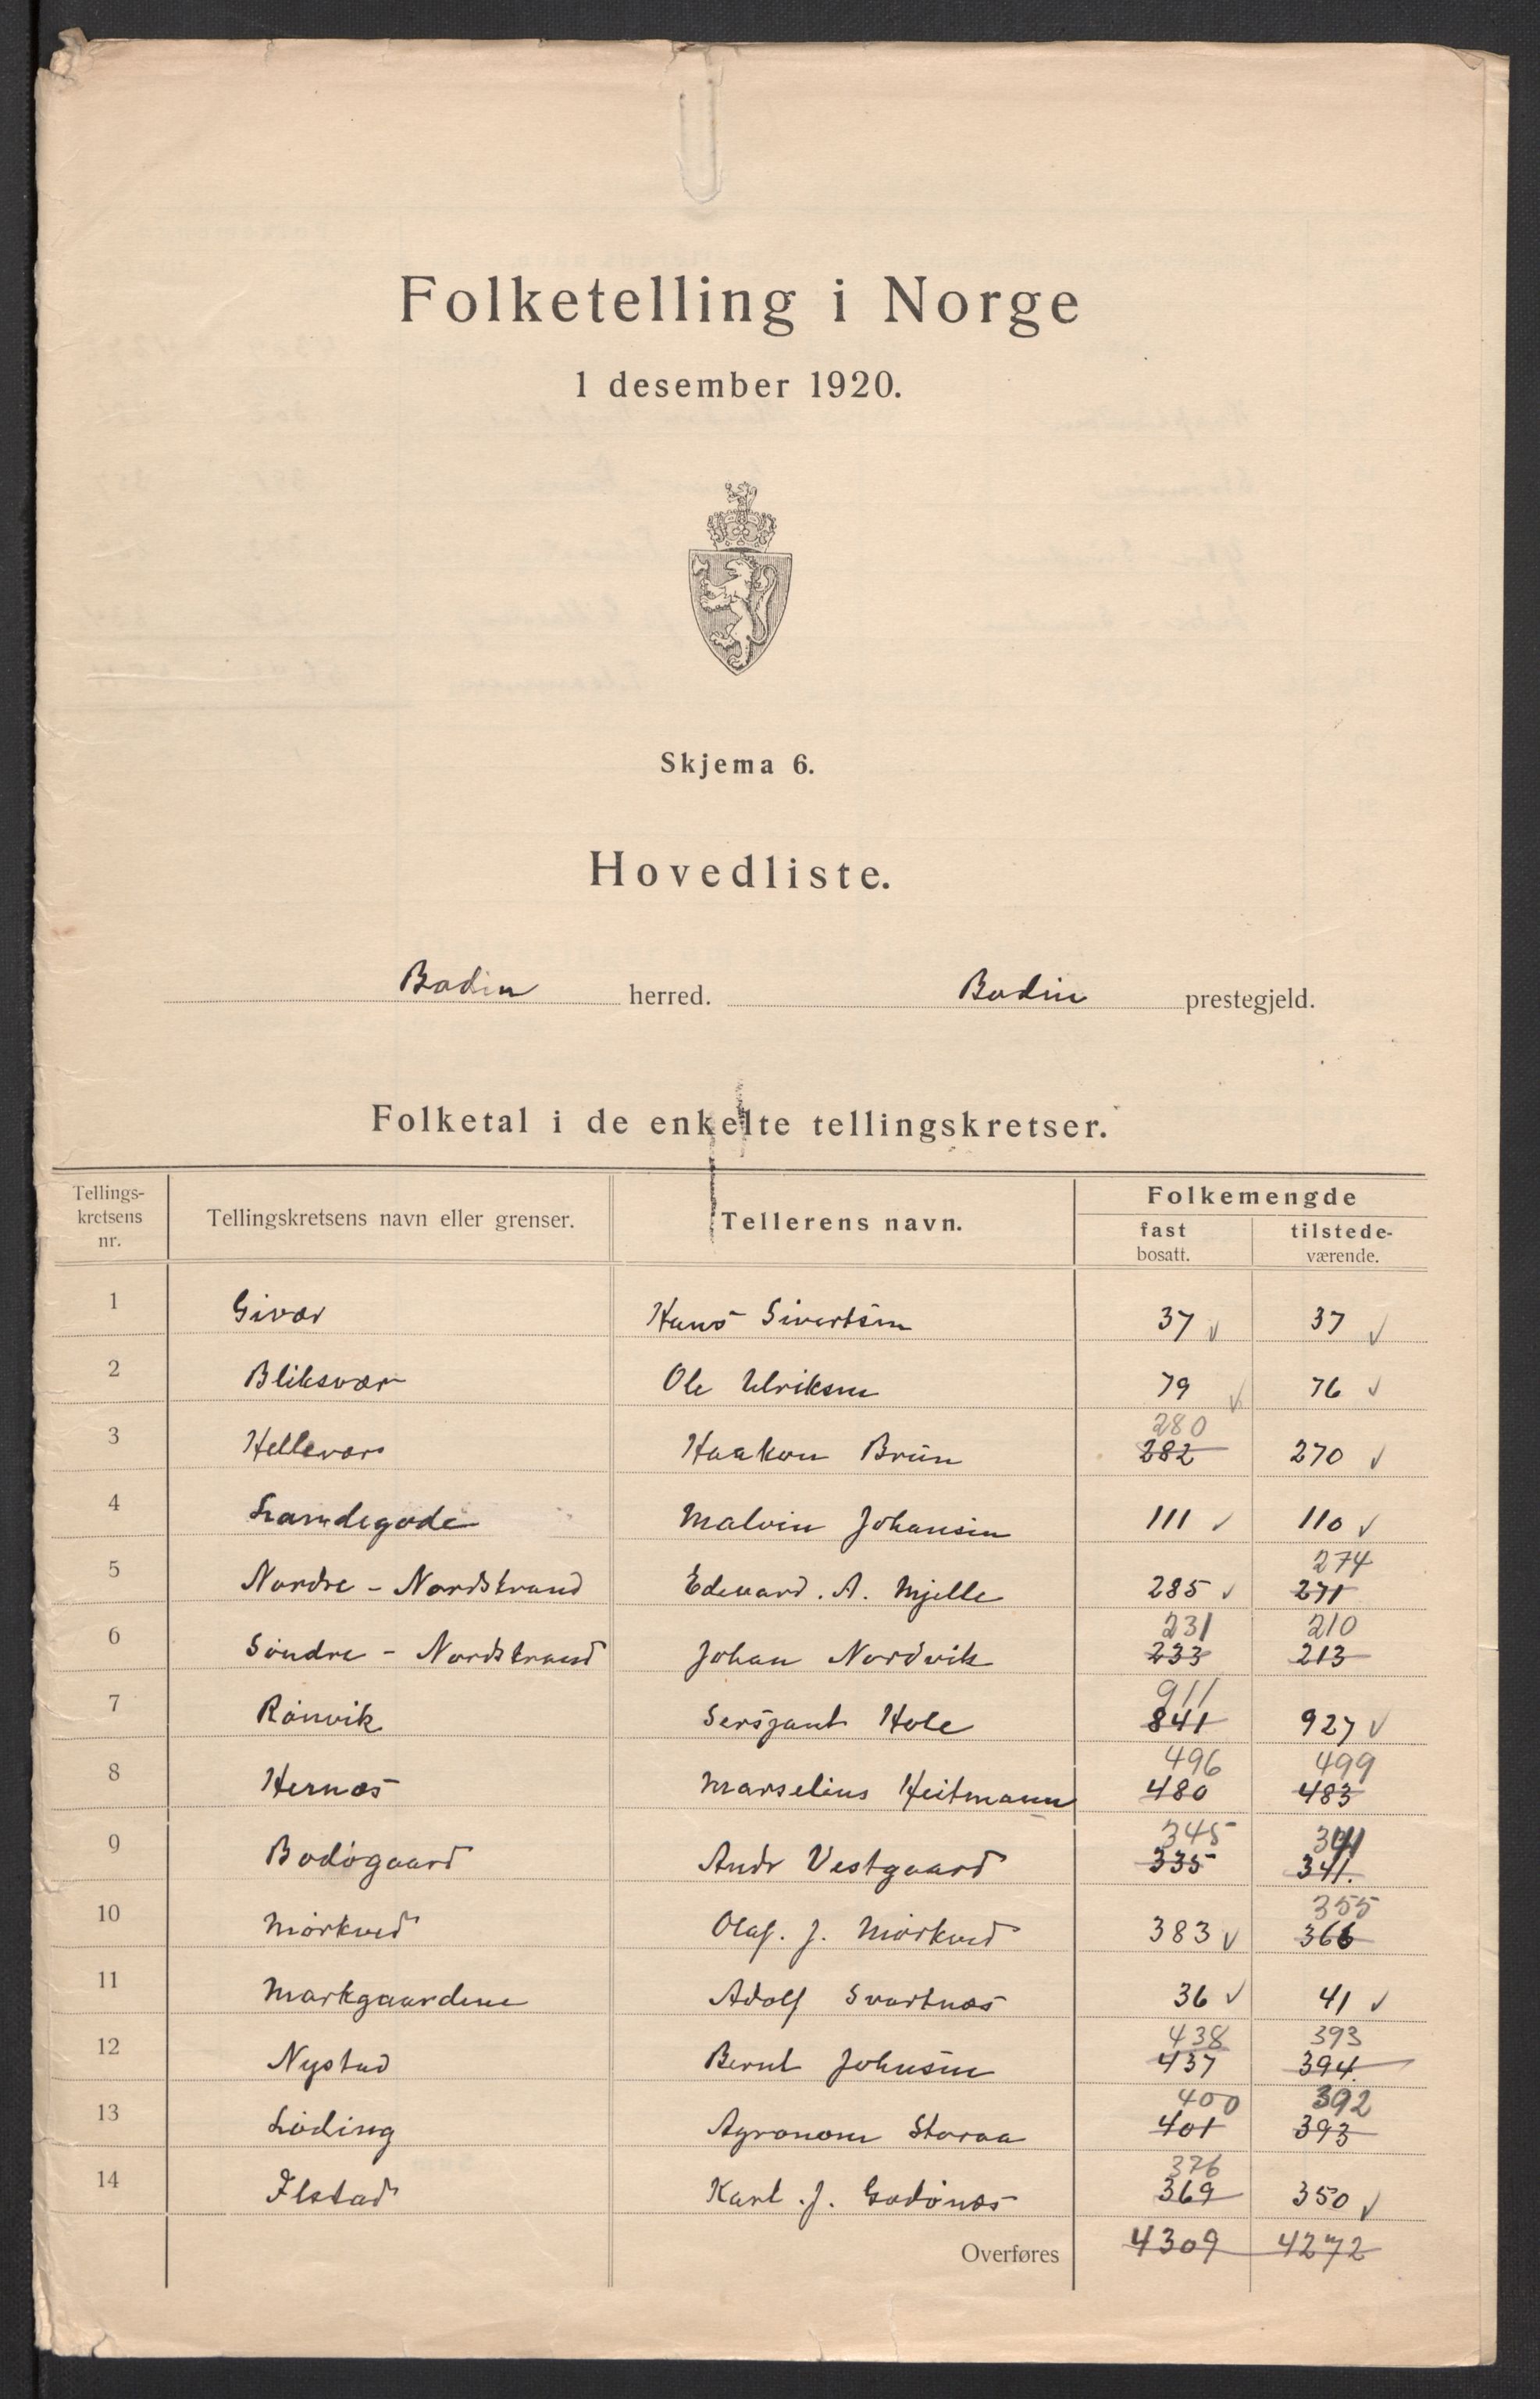 Folketelling i Norge
1 desember 1920.
Skjema 6.
Hovedliste.
Bodin herred. Bodin prestegjeld.
Folketal i de enkelte tellingskretser.
Tellings-kretsens nr. Tellingskretsens navn eller grenser. Tellerens navn. Folkemengde
fast bosatt. tilstede-værende.
1 Givær Hans Sivertsen 37 37
2 Bliksvær Ole Ulriksen 79 76
280
3 Hellevær Haakon Brün 282 270
4 Landegode Malvin Johansen 111 110
274
5 Nordre - Nordstrand Edevard. A. Mjelle 285 271
231 210
6 Söndre - Nordstrand Johan Nordvik 233 213
911
7 Rönvik Sersjant Hole 841 927
496 499
8 Hernæs Marselius Heitmann 480 483
345 341
9 Bodögaard Andr Vestgaard 335 341.
355
10 Mörkved Olaf. J. Mörkved 383 366
11 Markgaardene Adolf Svartnæs 36 41
438 393
12 Nystad Bernt Johnsen 437 394.
400 392
13 Löding Agronom Storaa 401 393
376
14 Ilstad Karl. J. Godönæs 369 350
Overføres 4309 4272